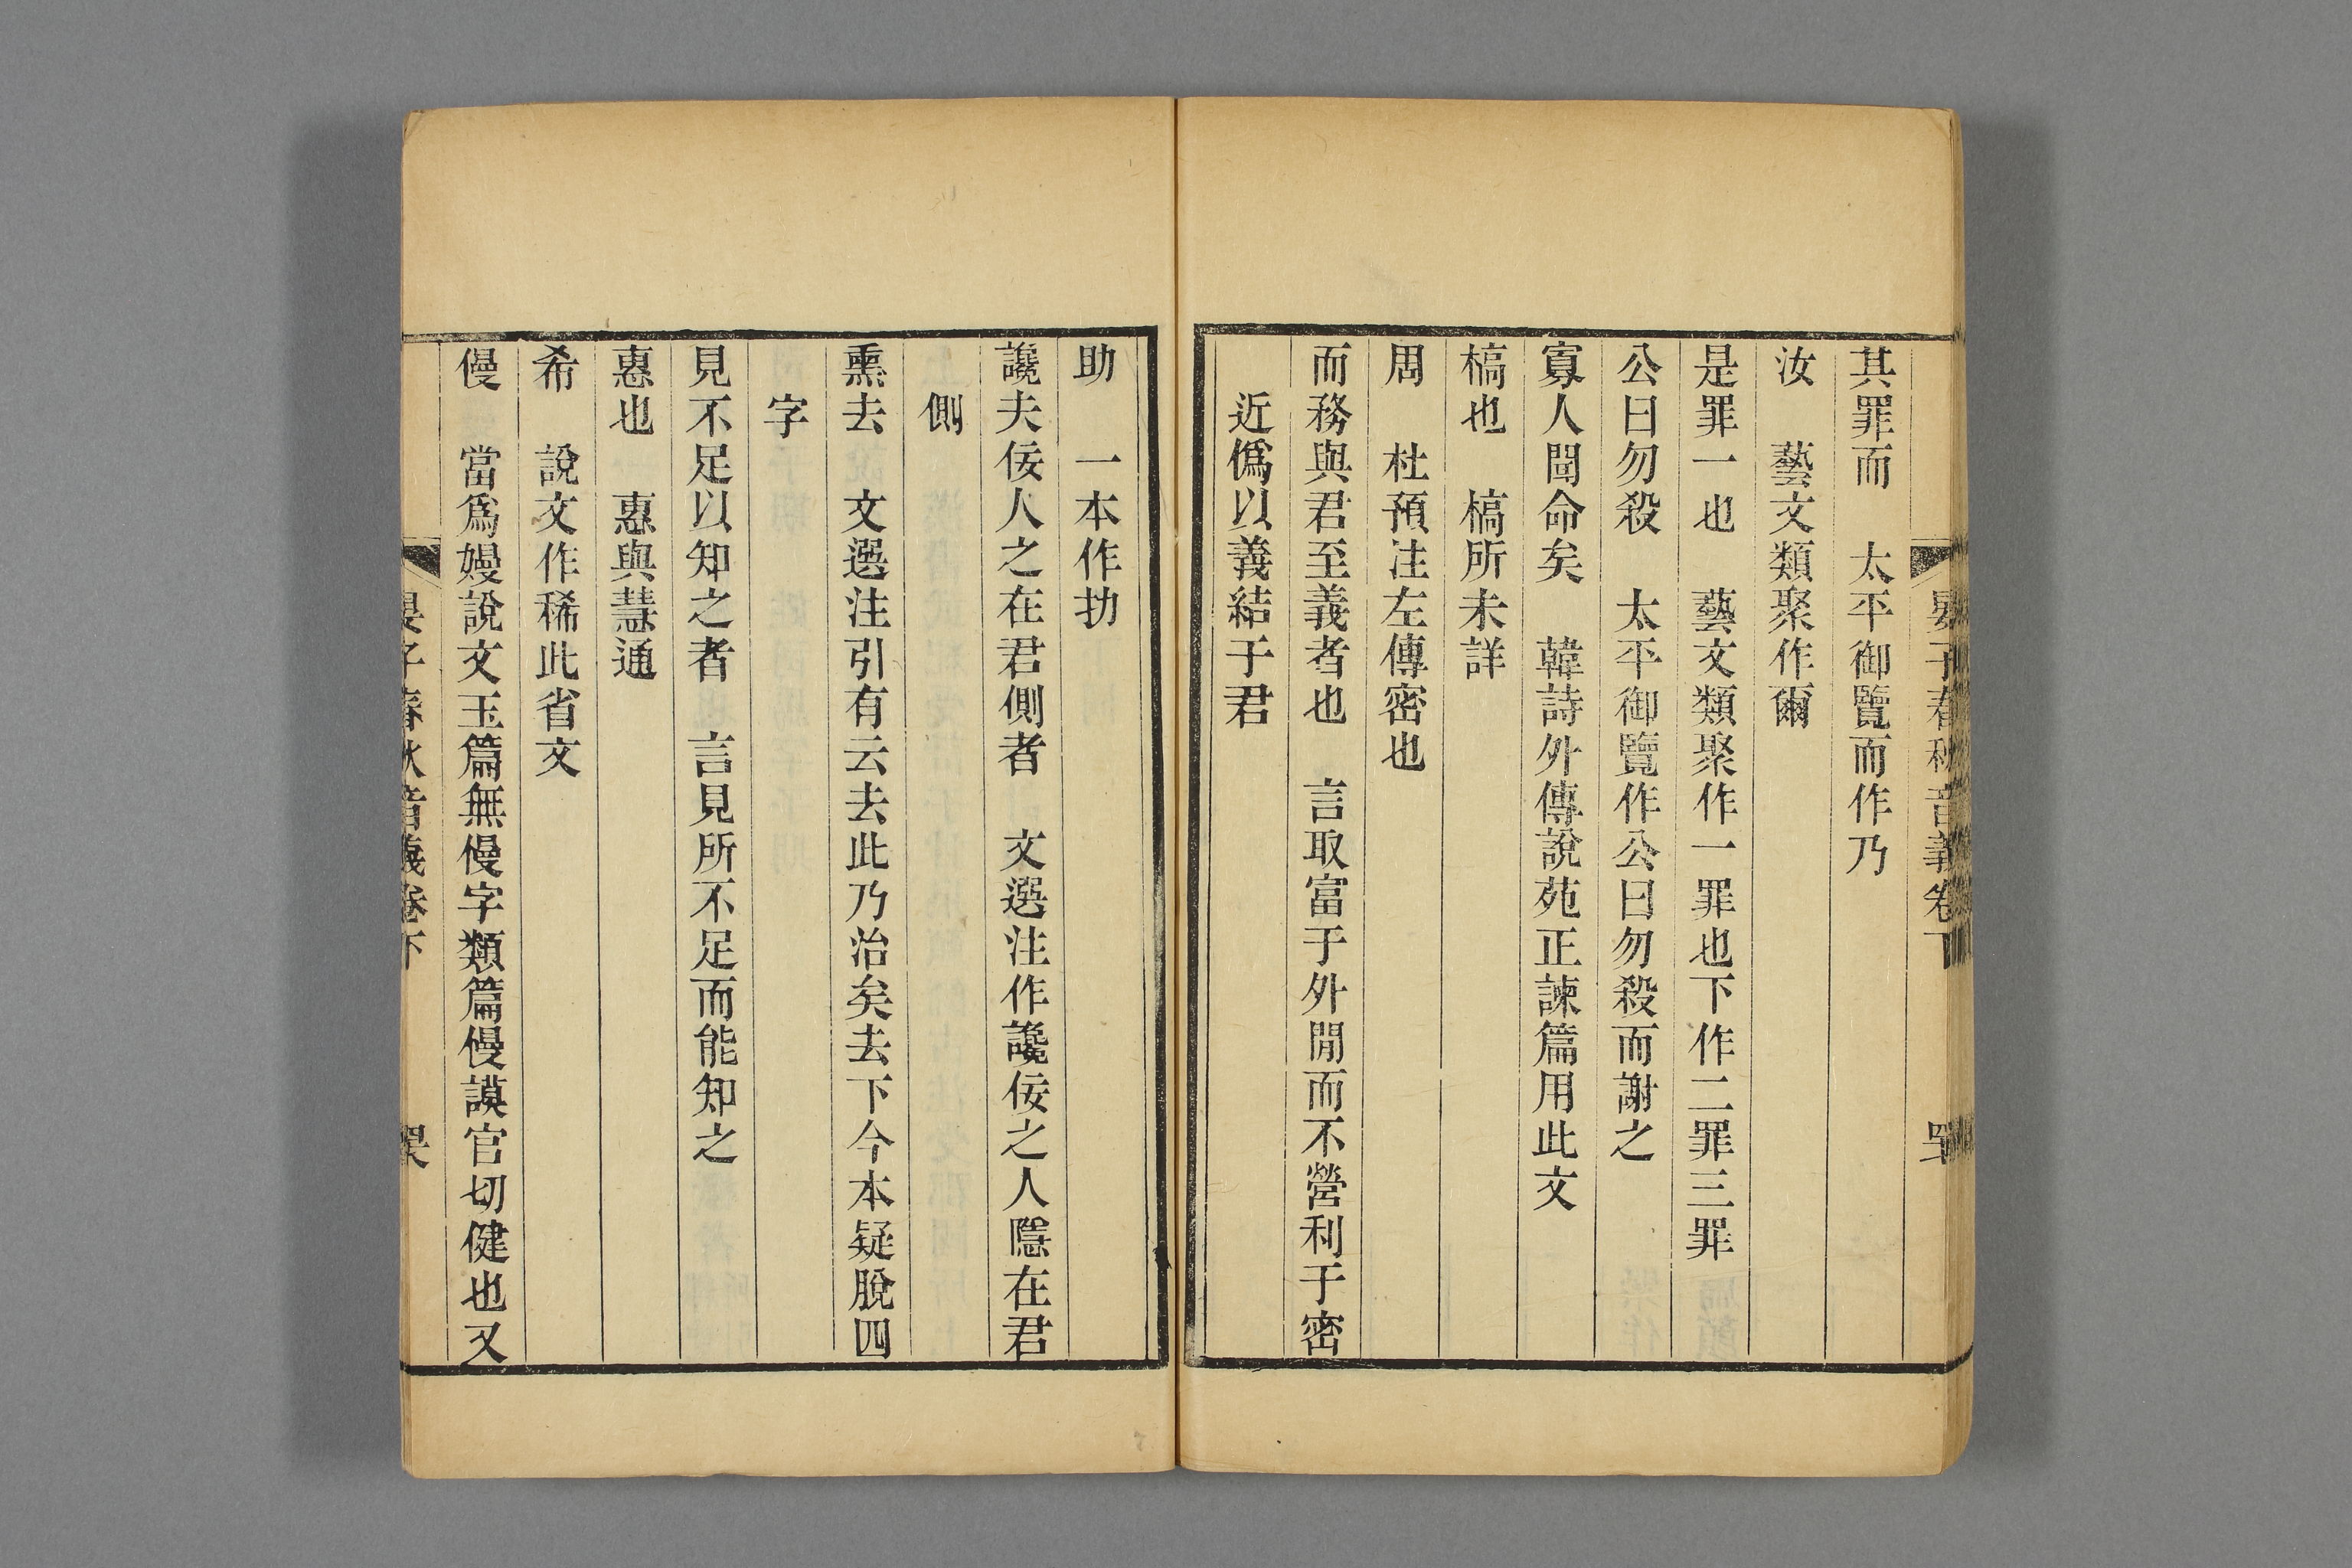 晏子春秋音義卷下
其罪而　太平御覽而作乃
汝　藝文類聚作爾
是罪一也　藝文類聚作一罪也下作二罪三罪
公曰勿殺　太平御覽作公曰勿殺而謝之
寡人聞命矣　韓詩外傳說苑正諫篇用此文
槁也　槁所未詳
周　杜預注左傳密也
而務與君至義者也　言取富于外閒而不營利于密
近僞以義結于君
助　一本作抐
讒夫佞人之在君側者　文選注作讒佞之人隱在君
側
熏去　文選注引有云去此乃治矣去下今本疑脫四
字
見不足以知之者　言見所不足而能知之
惠也　惠與慧通
希　說文作稀此省文
慢　當爲嫚說文玉篇無慢字類篇慢謨官切健也又
晏子春秋音義卷下